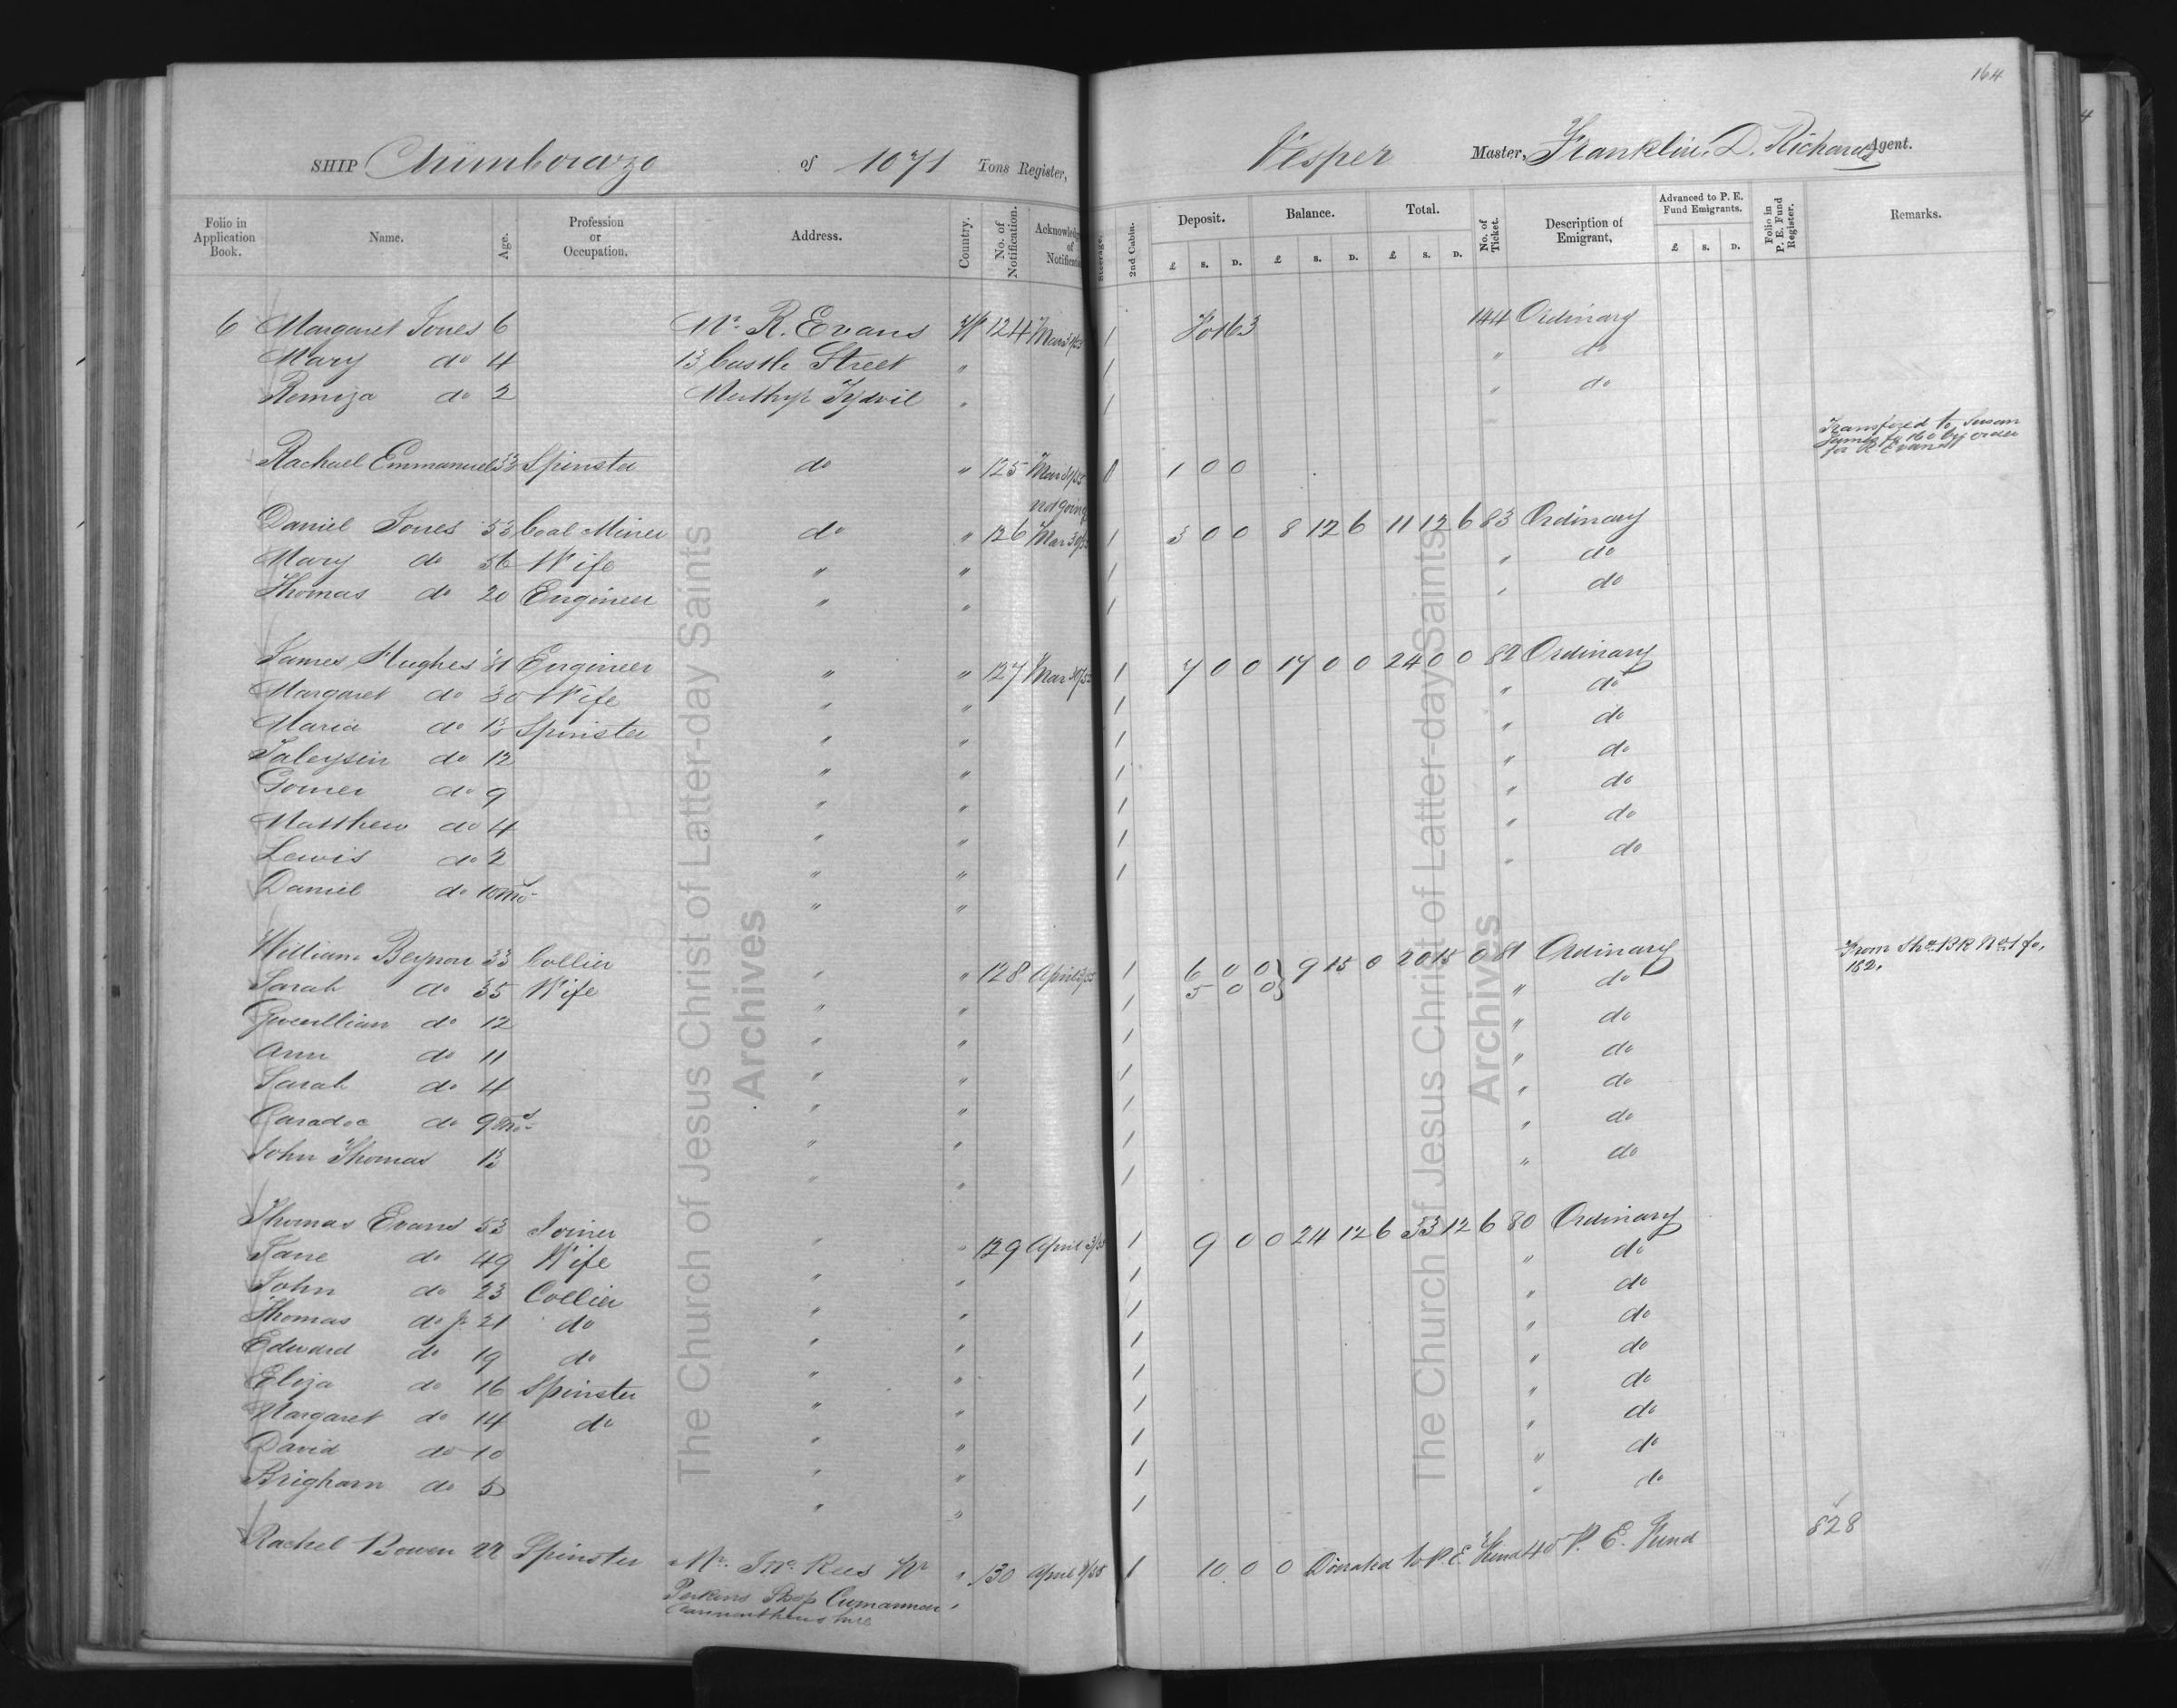 164
SHIP Chimborazo of 1071 Tons Register, Vesper Master, Franklin D. Richards Agent.
Folio in Application Book. Name. Age. Profession or Occupation. Address. Country. No. of Notification. Steerage. 2nd Cabin. Deposit. Balance. Total. No. of Ticket. Description of Emigrant, Advanced to P. E. Fund Emigrants. Folio in P. E. Fund Register. Remarks.
£ S. D. £ S. D. £ S. D. £ S. D.
6 Margaret Jones 6 Mr. R. Evans W 124 Mar 31/55 1 Fo 163 144 Ordinary
Mary do 4 13 Castle Street " 1 " do
Remiza do 2 Merthyr Tydvil " 1 " do
Transfered to Susan James fo 160 by order for R Evans
Rachael Emmanuel 33 Spinster do " 125 Mar 31/55 1 1 0 0
not going
Daniel Jones 53 Coal Miner do " 126 Mar 31/55 1 3 0 0 8 12 6 11 12 6 83 Ordinary
Mary do 56 Wife " " 1 " do
Thomas do 20 Engineer " " 1 " do
James Hughes 31 Engineer " " 127 Mar 31/55 1 7 0 0 17 0 0 24 0 0 82 Ordinary
Margaret do 30 Wife " " 1 " do
Maria do 13 Spinster " " 1 " do
Taleysin do 12 " " 1 " do
Gomer do 9 " " 1 " do
Matthew do 4 " " 1 " do
Lewis do 2 " " 1 " do
Daniel do 10 mos " "
William Beynon 33 Collier " " 128 April 2/55 1 6 0 0 } 9 15 0 20 15 0 81 Ordinary From Sho. B R No 1 fo,
Sarah do 35 Wife " " 1 5 0 0 } " do 152.
Gwenllian do 12 " " 1 " do
Ann do 11 " " 1 " do
Sarah do 4 " " 1 " do
Caradoc do 9 mos " " 1 " do
John Thomas 13 " " 1 " do
Thomas Evans 53 Joiner " " 129 April 3/55 1 9 0 0 24 12 6 33 12 6 80 Ordinary
Jane do 49 Wife " " 1 " do
John do 23 Collier " " 1 " do
Thomas do jr 21 do " " 1 " do
Edward do 19 do " " 1 " do
Eliza do 16 Spinster " " 1 " do
Margaret do 14 do " " 1 " do
David do 10 " " 1 " do
Brigham do 5 " " 1 " do
Rachel Bowen 22 Spinster Mr. Jno. Rees Nr " 130 April 3/55 1 10 0 0 Donated to P. E. Fund 40 P. E. Fund 828
Perkins Shop Cwmamman "
Carmarthenshire
The Church of Jesus Christ of Latter-day Saints
Archives
The Church of Jesus Christ of Latter-day Saints
Archives